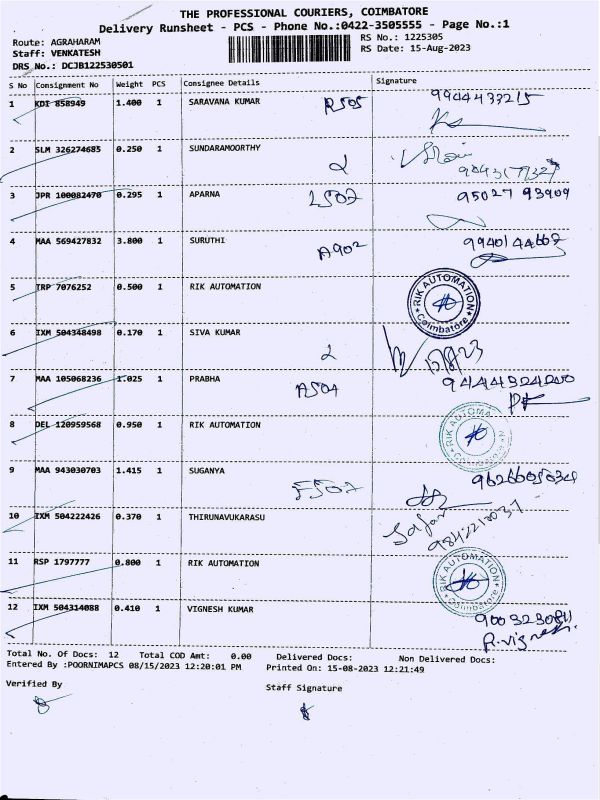 THE PROFESSIONAL COURIERS, COIMBATORE
Delivery Runsheet - PCS - Phone No.:0422-3505555 - Page No.:1
Route: AGRAHARAM
Staff: VENKATESH
DRS No.: DCJB122530501
RS No.: 1225305
RS Date: 15-Aug-2023
S No Consignment No Weight PCS Consignee Details Signature
1 KDI 858949 1.400 1 SARAVANA KUMAR R505 9944433215
2 SLM 326274685 0.250 1 SUNDARAMOORTHY
3 JPR 100082470 0.295 1 APARNA 95027 93909
4 MAA 569427832 3.800 1 SURUTHI A902 9940144667
5 TRP 7076252 0.500 1 RIK AUTOMATION RIK AUTOMATION Coimbatore
6 IXM 504348498 0.170 1 SIVA KUMAR 15/8/23
7 MAA 105068236 1.025 1 PRABHA A504
8 DEL 120959568 0.950 1 RIK AUTOMATION RIK AUTOMATION Coimbatore
9 MAA 943030703 1.415 1 SUGANYA F507
10 IXM 504222426 0.370 1 THIRUNAVUKARASU
11 RSP 1797777 0.800 1 RIK AUTOMATION RIK AUTOMATION Coimbatore
12 IXM 504314088 0.410 1 VIGNESH KUMAR
Total No. Of Docs: 12 Total COD Amt: 0.00 Delivered Docs: Non Delivered Docs:
Entered By :POORNIMAPCS 08/15/2023 12:20:01 PM Printed On: 15-08-2023 12:21:49
Verified By
Staff Signature